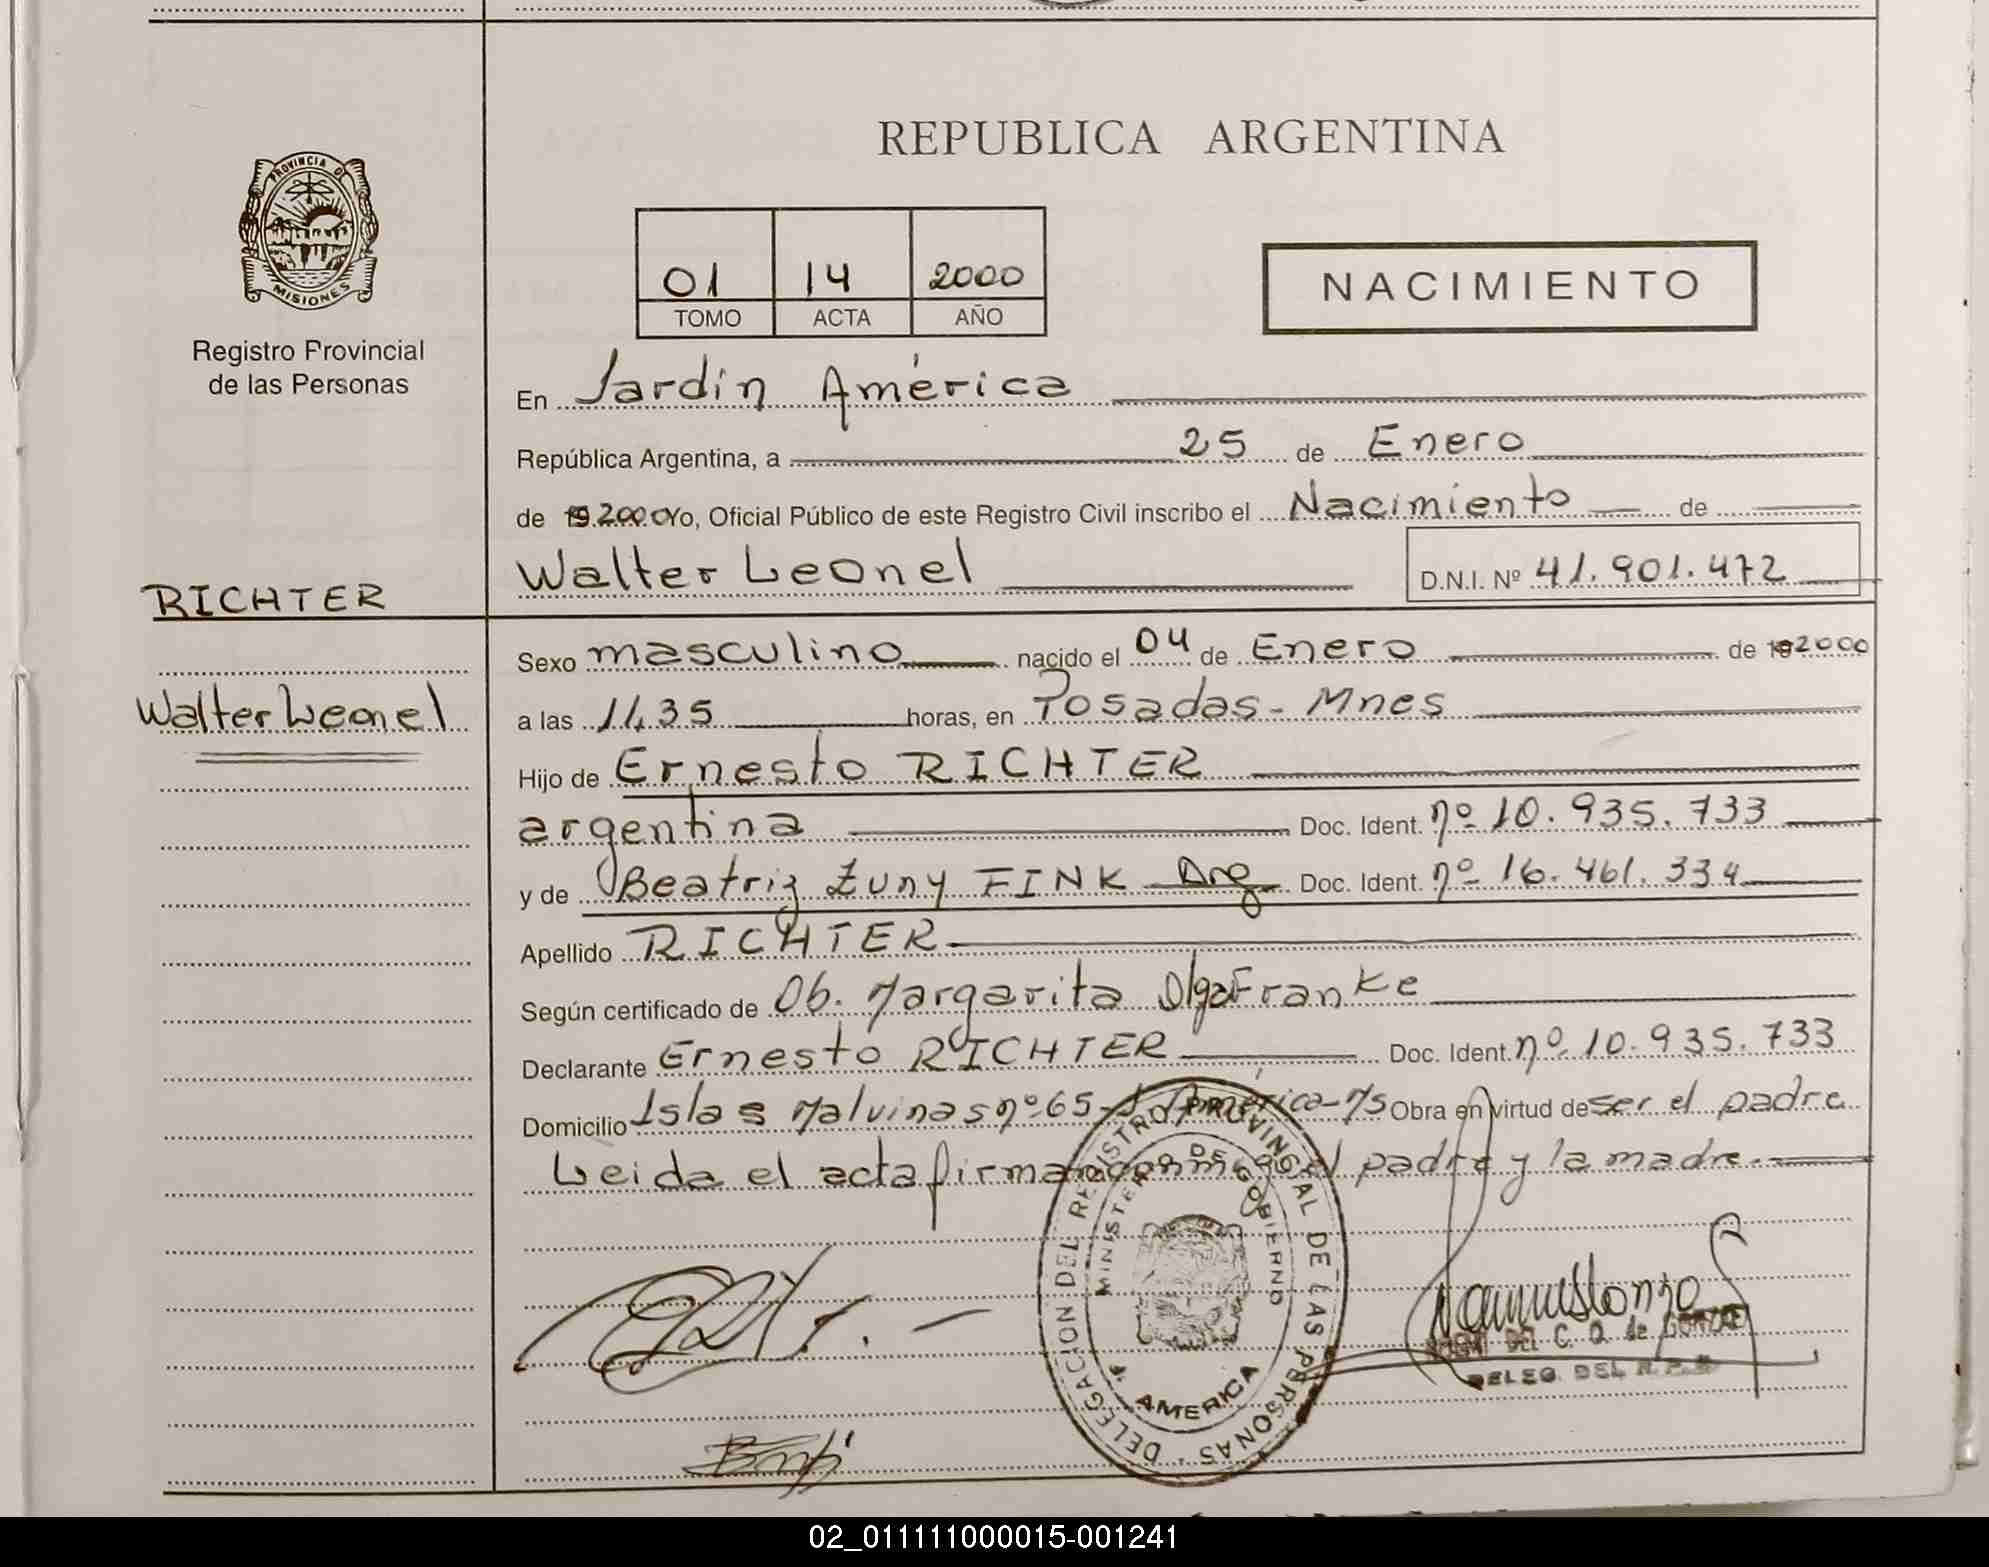 PROVINCIA DE
MISIONES
Registro Provincial
de las Personas
RICHTER
Walter Leonel
REPUBLICA ARGENTINA
01 14 2000
TOMO ACTA AÑO
NACIMIENTO
En Jardín América
República Argentina, a 25 de Enero
de 19 2000 Yo, Oficial Público de este Registro Civil inscribo el Nacimiento de
Walter Leonel D.N.I. Nº 41.901.472
Sexo masculino nacido el 04 de Enero de 19 2000
a las 11,35 horas, en Posadas - Mnes
Hijo de Ernesto RICHTER
argentina Doc. Ident. nº 10.935.733
y de Beatriz Zuny FINK Arg Doc. Ident. nº 16.461.334
Apellido RICHTER
Según certificado de Ob. Margarita Olga Franke
Declarante Ernesto RICHTER Doc. Ident. nº 10.935.733
Domicilio Islas Malvinas nº 65 - J América - Ms Obra en virtud de ser el padre
Leida el acta firman conmigo el padre y la madre.-
DELEGACION DEL REGISTRO PROVINCIAL DE LAS PERSONAS
MINISTERIO DE GOBIERNO
J. AMERICA
DELEG. DEL R. P. P.
02_011111000015-001241